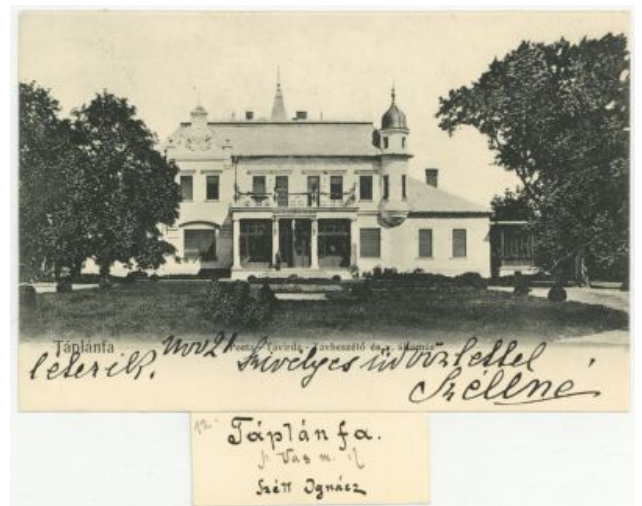 Táplánfa Posta-Távirda-Távbeszélő és v. állomás
nov 21 Szívélyes üdvözlettel
Széllné
12.
Táplánfa.
Vas m.
Széll Ignácz